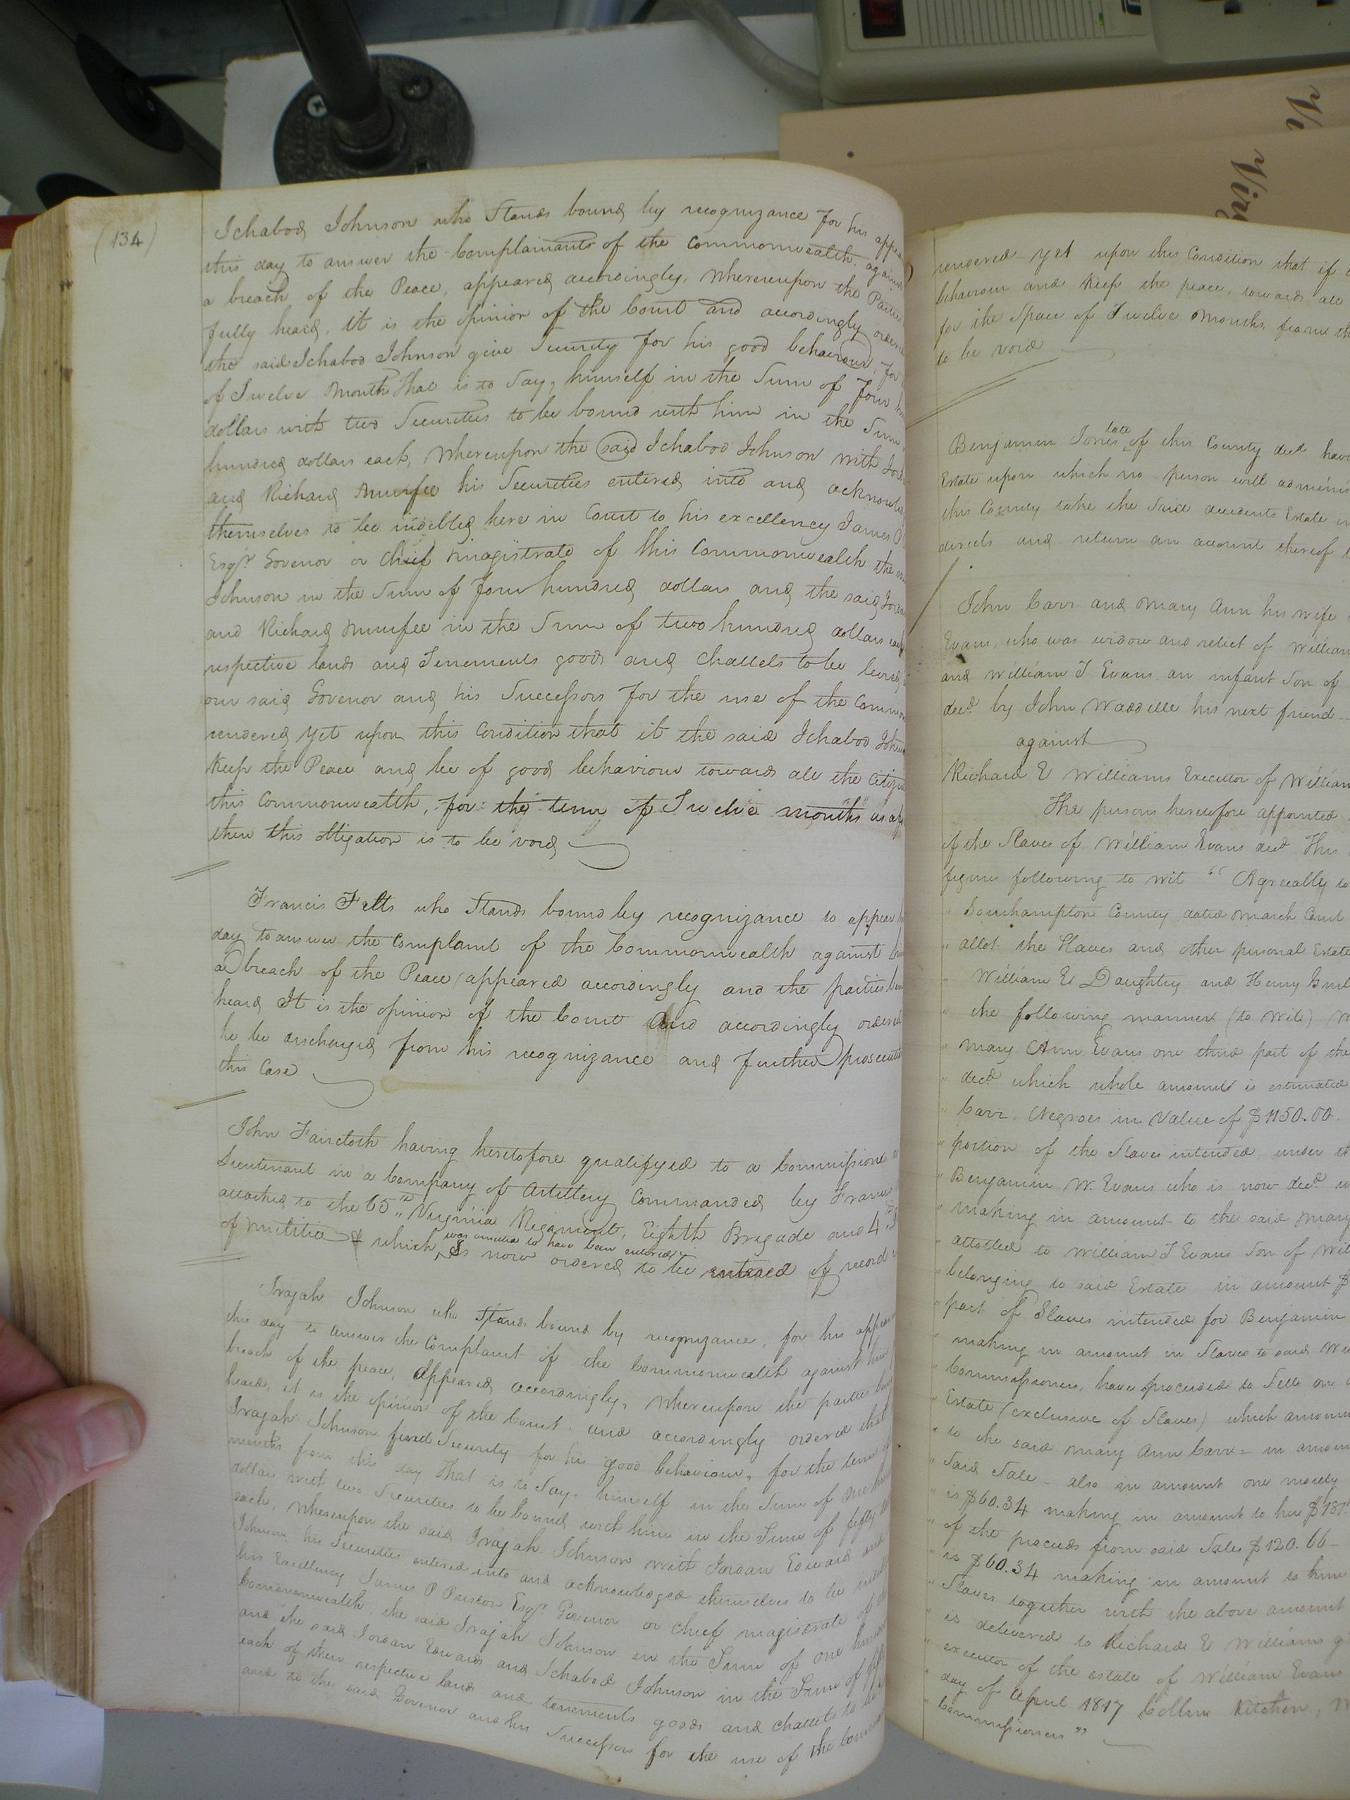 (134)
Ichabod Johnson who Stands bound by recognizance for his appea
this day to answer the Complainants of the Commonwealth against
a breach of the Peace, appeared accordingly, Whereupon the Parties
fully heard, it is the opinion of the Court and accordingly ordered
the said Ichabod Johnson give Security for his good behaviour, for
of Twelve Months That is to Say, himself in the Sum of Four
dollars with two Securities to be bound with him in the Sum
hundred dollars each, Whereupon the said Ichabod Johnson with
and Richard Murfee his Securities entered into and acknowle
themselves to be indebted here in Court to his excellency James P
Esqr. Govenor or Chief magistrate of this Commonwealth the
Johnson in the Sum of four hundred dollars and the said
and Richard Murfee in the Sum of two hundred dollars each
respective lands and Tenements goods and Chattels to be levied
our said Govenor and his Successors for the use of the Common
rendered yet upon this Condition that if the said Ichabod John
Keep the Peace and be of good behaviour towards all the Citizen
this Commonwealth, for the term of Twelve months as
then this obligation is to be void
Francis Felts who Stands bound by recognizance to appear
day to answer the Complaint of the Commonwealth against
a breach of the Peace appeared accordingly and the parties
heard It is the opinion of the Court And accordingly ordered
he be discharged from his recognizance and further prosecuti
this Case
John Faircloth having heretofore qualifyed to a Commission
Lieutenant in a Company of Artillery Commanded by Francis
attached to the 65th Virginia Regiment, Eighth Brigade and 4th
was omitted to have been entered
of militia & which, Is now ordered to be entered of record
Irajah Johnson who Stands bound by recognizance, for his appear
this day to answer the Complaint of the Commonwealth against him
breach of the peace, Appeared accordingly, Whereupon the parties
heard, it is the opinion of the Court and accordingly ordered that
Irajah Johnson find Security for his good behaviour, for the term
months from this day that is to Say, himself in the Sum of One
dollars with two Securities to be bound with him in the Sum of fifty
each, Whereupon the said Irajah Johnson with Jordan Edwards and
Johnson his Securities entered into and acknowledged themselves to be
his Excellency James P Preston Esqr. Govenor or Chief magistrate of
Commonwealth, the said Irajah Johnson in the Sum of One hun
and the said Jordan Edwards and Ichabod Johnson in the Sum of fifty
each of their respective lands and tenements goods and Chattels to
and to the said Govenor and his Successors for the use of the Com
rendered yet upon this Condition that if
behaviour and Keep the peace, towards all
for the Space of Twelve Months from th
to be void
late
Benjamin Jones of this County decd. have
Estate upon which no person will adminis
this County take the said decedents Estate
directs and return an account thereof
John Carr and Mary Ann his wife
Evans, who was widow and relict of William
and William T Evans an infant Son of
decd. by John Waddille his next friend
against
Richard E Williams Executor of William
The persons heretofore appointed
of the Slaves of William Evans decd. This
figures following to wit " Agreeably to
Southampton County dated March Court
allot the Slaves and other personal Estate
William E Daughtry and Henry
the following manner (to wit)
Mary Ann Evans one third part of the
decd. which whole amount is estimated
Carr. Negroes in Value of $1150.00
portion of the Slaves intended under
Benjamin W. Evans who is now decd.
making in amount to the said Mary
allotted to William T Evans Son of Wil
belonging to said Estate in amount $
part of Slaves intended for Benjamin
making in amount in Slaves to said
Commissioners, have proceeded to Sell
Estate (exclusive of Slaves) which amoun
to the said Mary Ann Carr = in amou
said Sale also in amount one moiety
is $60.34 making in amount to her $
of the proceeds from said Sales $120.66
is $60.34 making in amount to him
Slaves together with the above amount
is delivered to Richard E Williams
executor of the estate of William Evans
day of April 1817 Collin Kitchen,
Commissioners"